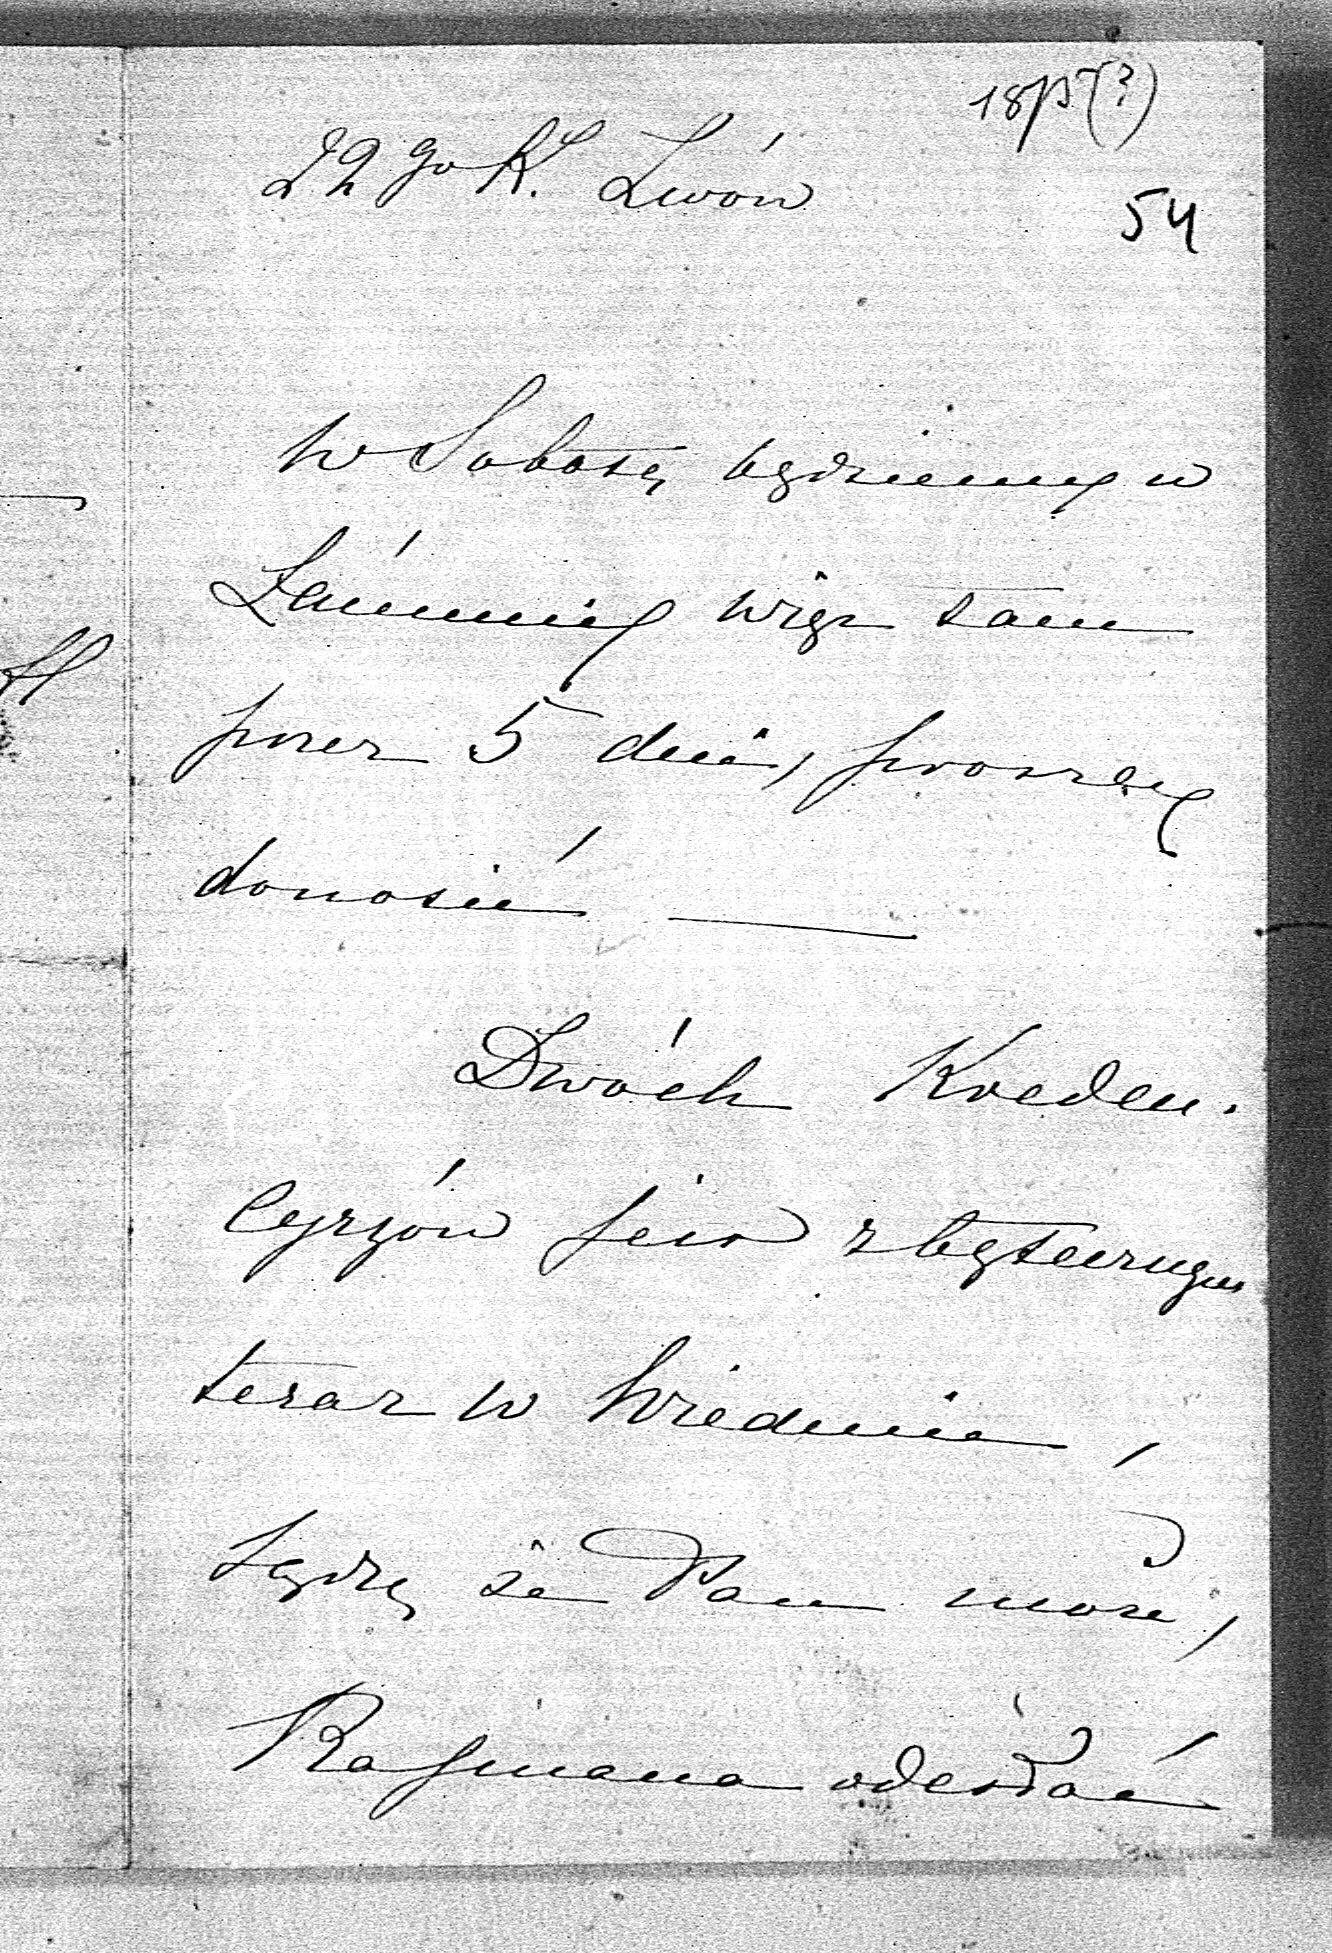 18/5 (?)
22 go K. Lwów
54
w Sobotę będziemy w
Łańcucie więc tam
przez 5 dni, proszę
donosić —
Dwóch Kreden.
cyrzów jest zbytecznym
teraz w Wiedniu,
Sądzę że Pan może,
Rajmana odesłać